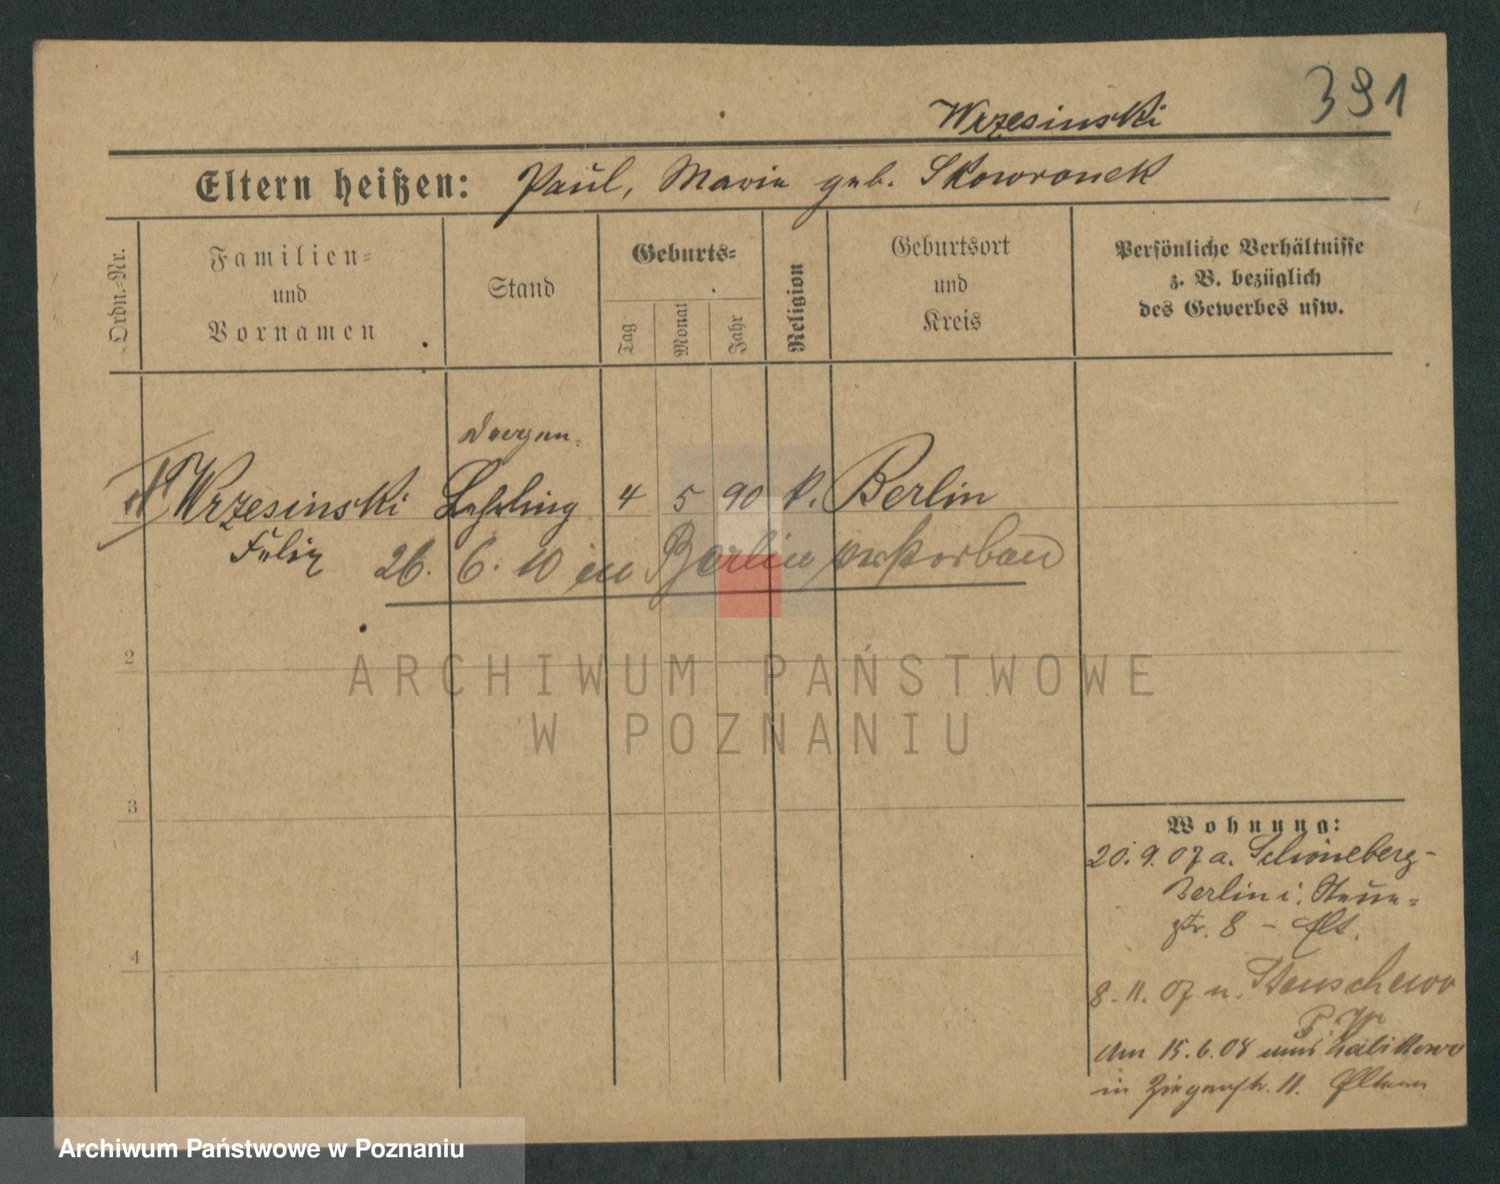 391
Wrzesinski
Eltern heißen: Paul, Marie geb. Skowronek
Ordn.-Nr.
Familien-
und
Vornamen
Stand
Geburts-
Tag
Monat
Jahr
Religion
Geburtsort
und
Kreis
Persönliche Verhältnisse
z. B. bezüglich
des Gewerbes usw.
Wrzesinski Lehrling 4 5 90 k. Berlin
Felix
26. 6. 10 in Berlin verstorben
2
3
4
Wohnung:
20. 9. 07 a. Schöneberg-
Berlin i.
str. 8 - Elt.
8. 11. 07 n.
Am 15. 6. 08
in Ziegenstr. 11. Eltern
ARCHIWUM PAŃSTWOWE
W POZNANIU
Archiwum Państwowe w Poznaniu